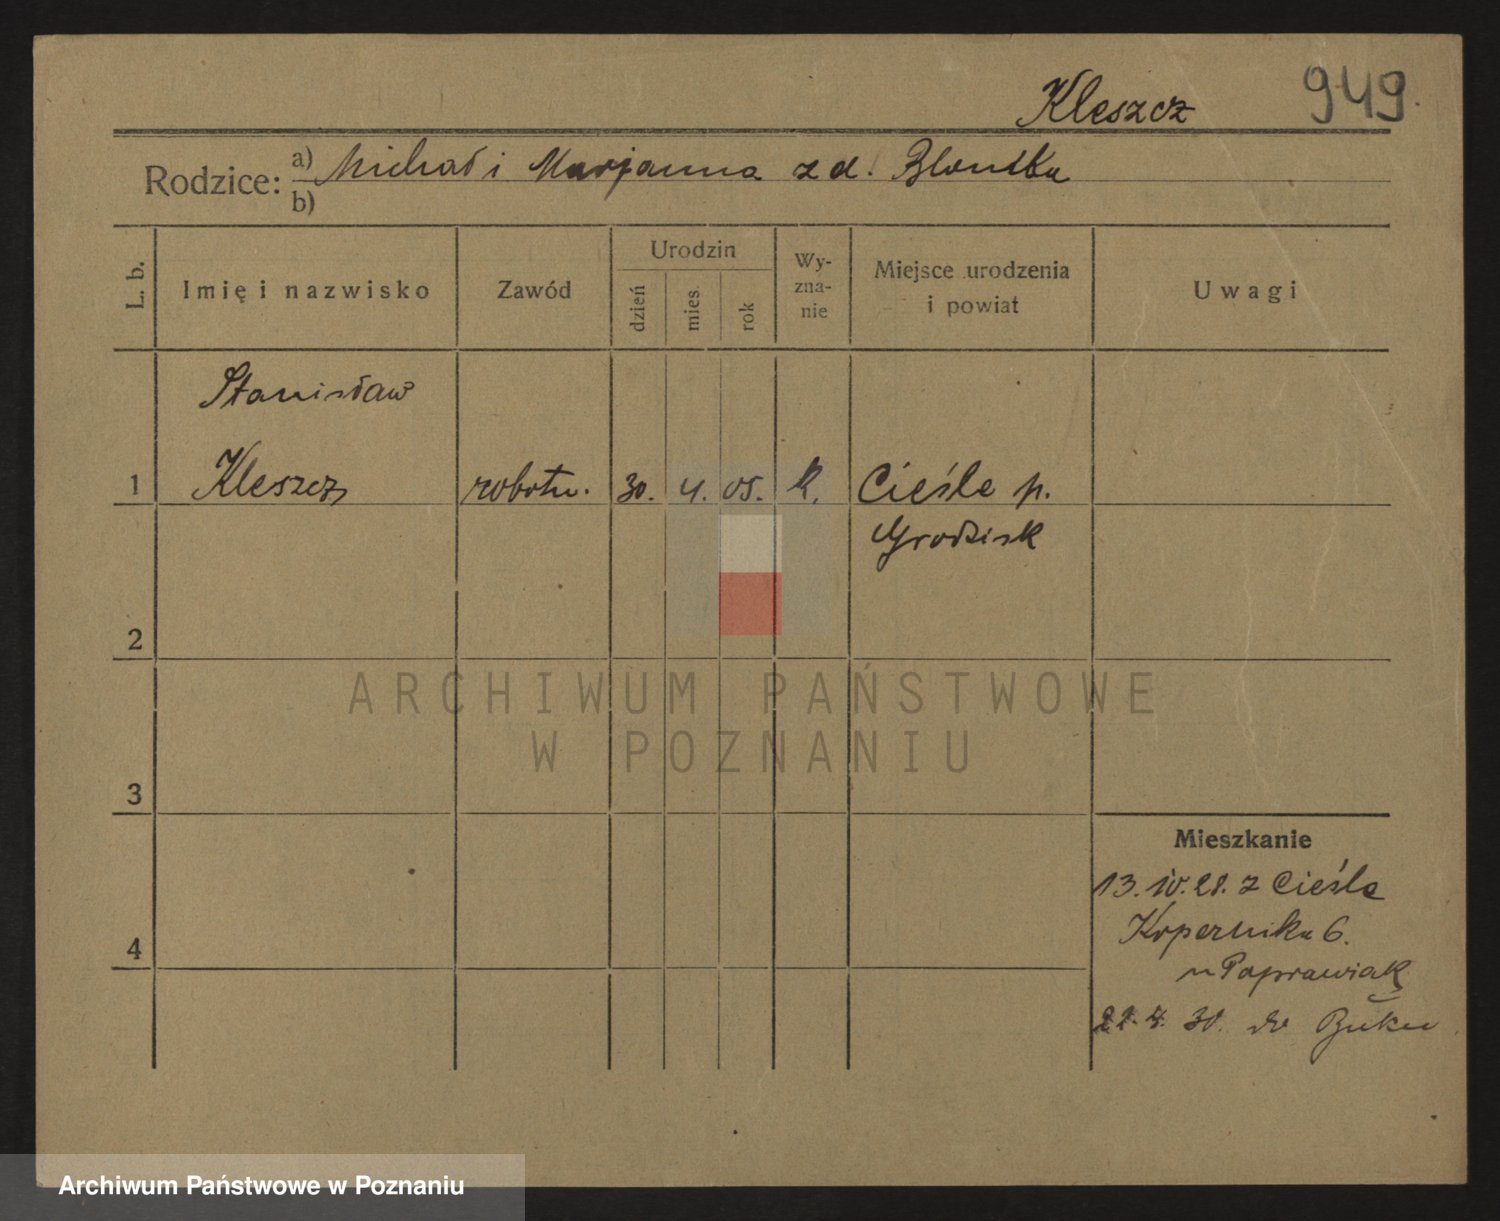 Kleszcz 949.
Rodzice: a) Michał i Marjanna z d. Blontka
b)
L. b.
Imię i nazwisko
Zawód
Urodzin
dzień
mies.
rok
Wy-
zna-
nie
Miejsce urodzenia
i powiat
Uwagi
Stanisław
1 Kleszcz robotn. 30. 4. 05. k. Cieśle p.
Grodzisk
2
ARCHIWUM PAŃSTWOWE
W POZNANIU
3
Mieszkanie
13. IV. 28. z Cieśle
Kopernika 6.
4
u Poprawiak
30. do Buku
Archiwum Państwowe w Poznaniu